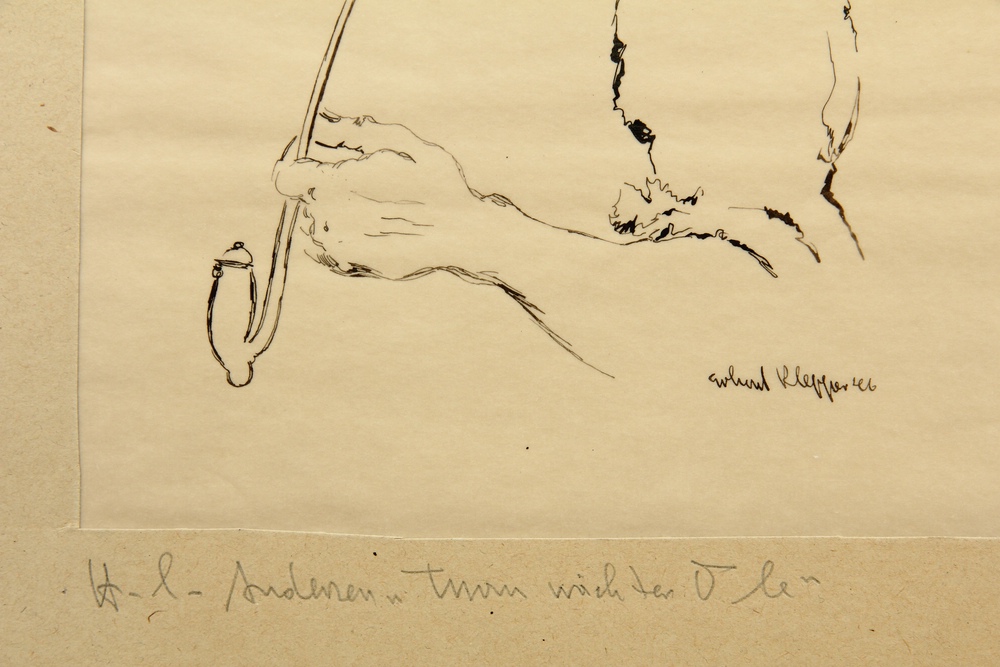 Erhard Klepper 46
H.-C. Andersen „Turmwächter Ole"